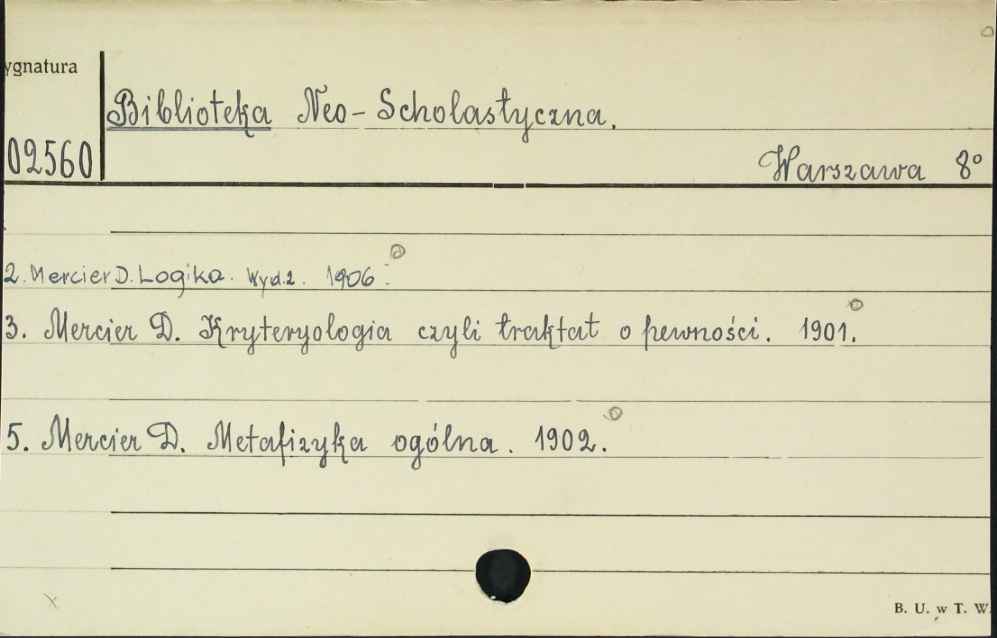 ygnatura
Biblioteka Neo-Scholastyczna.
02560
Warszawa 8°
2. Mercier D. Logika. Wyd. 2. 1906.
3. Mercier D. Kryteryologia czyli traktat o pewności. 1901.
5. Mercier D. Metafizyka ogólna. 1902.
B. U. w T. W.